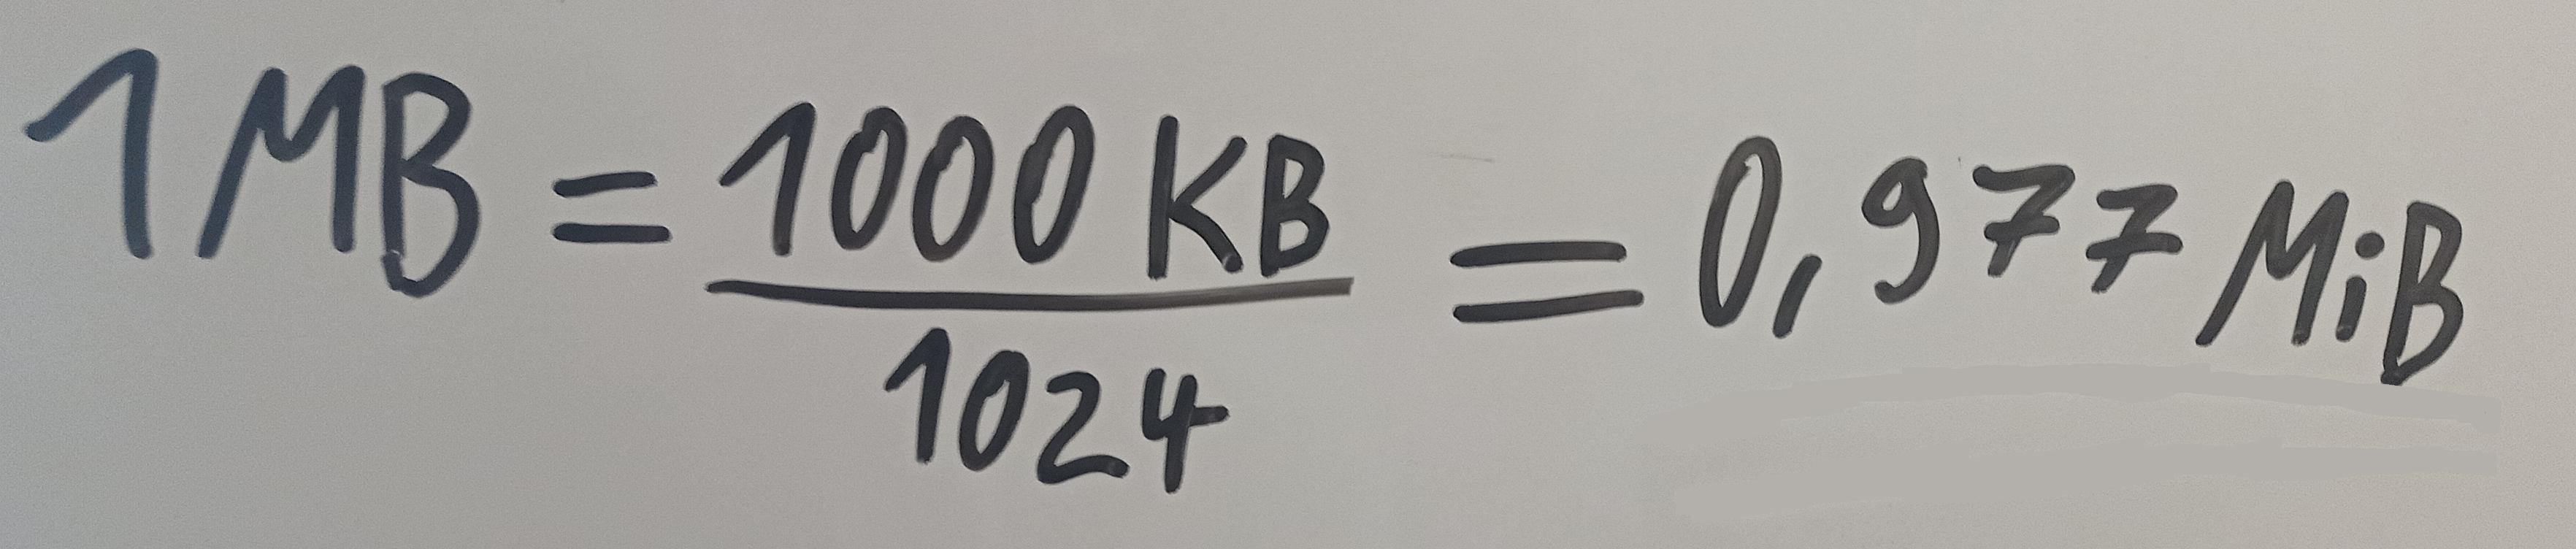 1 MB = 1000 KB / 1024 = 0,977 MiB